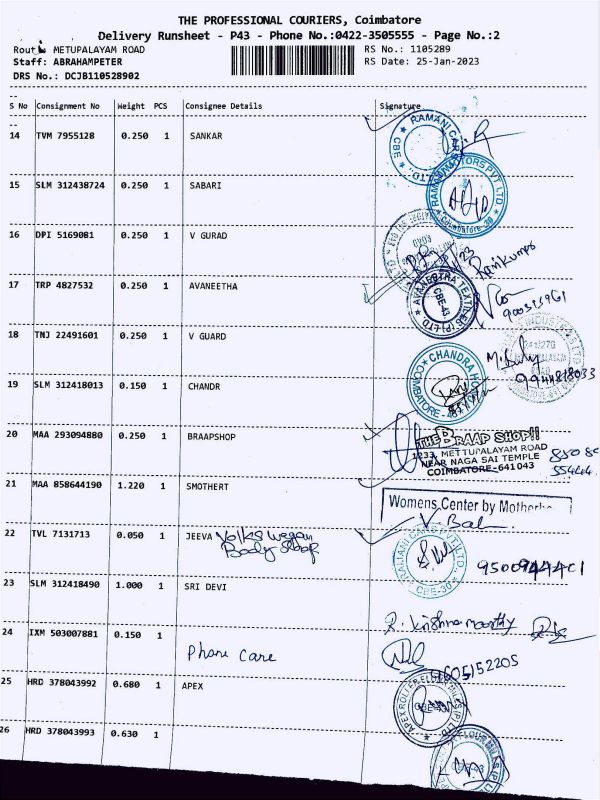 THE PROFESSIONAL COURIERS, Coimbatore
Delivery Runsheet - P43 - Phone No.:0422-3505555 - Page No.:2
Route: METUPALAYAM ROAD RS No.: 1105289
Staff: ABRAHAMPETER RS Date: 25-Jan-2023
DRS No.: DCJB110528902
S No Consignment No Weight PCS Consignee Details Signature
14 TVM 7955128 0.250 1 SANKAR
RAMANI CARS LTD. CBE
15 SLM 312438724 0.250 1 SABARI
RAMANI MOTORS PVT LTD Coimbatore
16 DPI 5169081 0.250 1 V GURAD
Ramkumar
17 TRP 4827532 0.250 1 AVANEETHA
AVANEETHA TEXTILES (P) LTD CBE-43
18 TNJ 22491601 0.250 1 V GUARD
19 SLM 312418013 0.150 1 CHANDR
CHANDRA COIMBATORE
9944818033
20 MAA 293094880 0.250 1 BRAAPSHOP
THE BRAAP SHOP!!
1233, METTUPALAYAM ROAD
NEAR NAGA SAI TEMPLE
COIMBATORE-641043
21 MAA 858644190 1.220 1 SMOTHERT
Womens Center by
22 TVL 7131713 0.050 1 JEEVA Volkswegan
Body shop
RAMANI CARS PVT LTD CBE-30
23 SLM 312418490 1.000 1 SRI DEVI
R. Krishnamoorthy
24 IXM 503007881 0.150 1
Phone care
25 HRD 378043992 0.680 1 APEX
APEX ROLLER FLOUR MILLS (P) LTD
26 HRD 378043993 0.630 1
FLOUR MILLS (P)